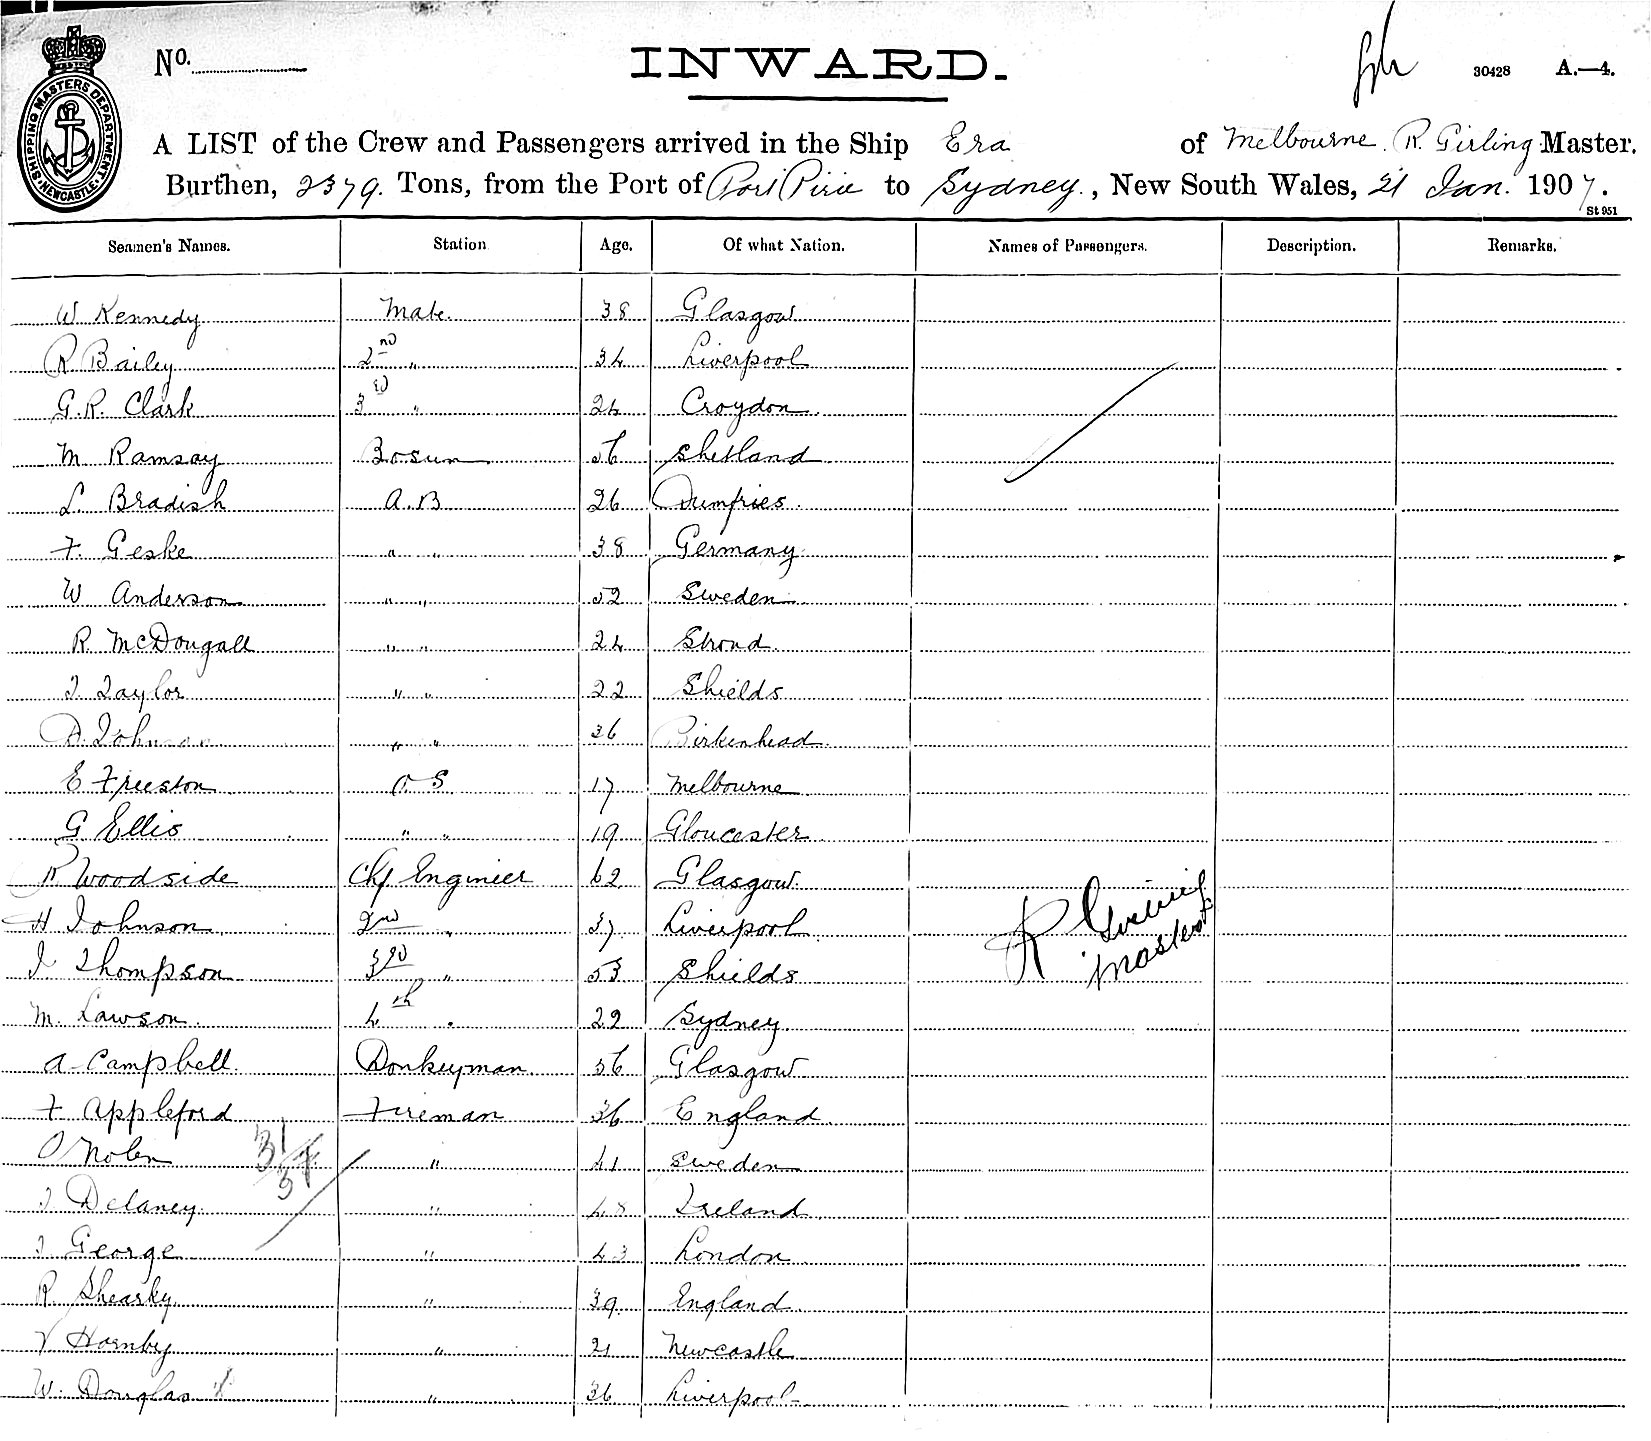 SHIPPING MASTERS DEPARTMENT. NEWCASTLE.
No. INWARD. 30428 A.—4.
A LIST of the Crew and Passengers arrived in the Ship Era of Melbourne. R. Girling Master.
Burthen, 2379. Tons, from the Port of Port Pirie to Sydney., New South Wales, 21 Jan. 1907.
St 951
Seamen's Names. Station Age. Of what Nation. Names of Passengers. Description. Remarks.
W Kennedy Mate. 38 Glasgow
R Bailey 2nd " 34 Liverpool
G. R. Clark 3rd " 24 Croydon.
M Ramsay Bosun 56 Shetland
L. Bradish A.B 26 Dumfries.
F. Geske " " 38 Germany
W Anderson " " 52 Sweden
R. McDougall " " 24 Stroud.
T Taylor " " 22 Shields
D. Johnson " " 36 Birkenhead.
E Freeston O S 17 Melbourne
G Ellis " " 19 Gloucester
R Woodside Chf Engineer 62 Glasgow.
H Johnson. 2nd " 37 Liverpool
J Thompson 3rd " 53 Shields
M. Lawson. 4th " 22 Sydney.
A Campbell. Donkeyman. 56 Glasgow
F Appleford Fireman 36 England.
O Nolen " 41 Sweden
J Delaney. " 48 Ireland.
J George " 43 London
R. Shearky. " 39 England.
V Hornby " 21 Newcastle
W. Douglas " 36 Liverpool
R Girling
Master
31